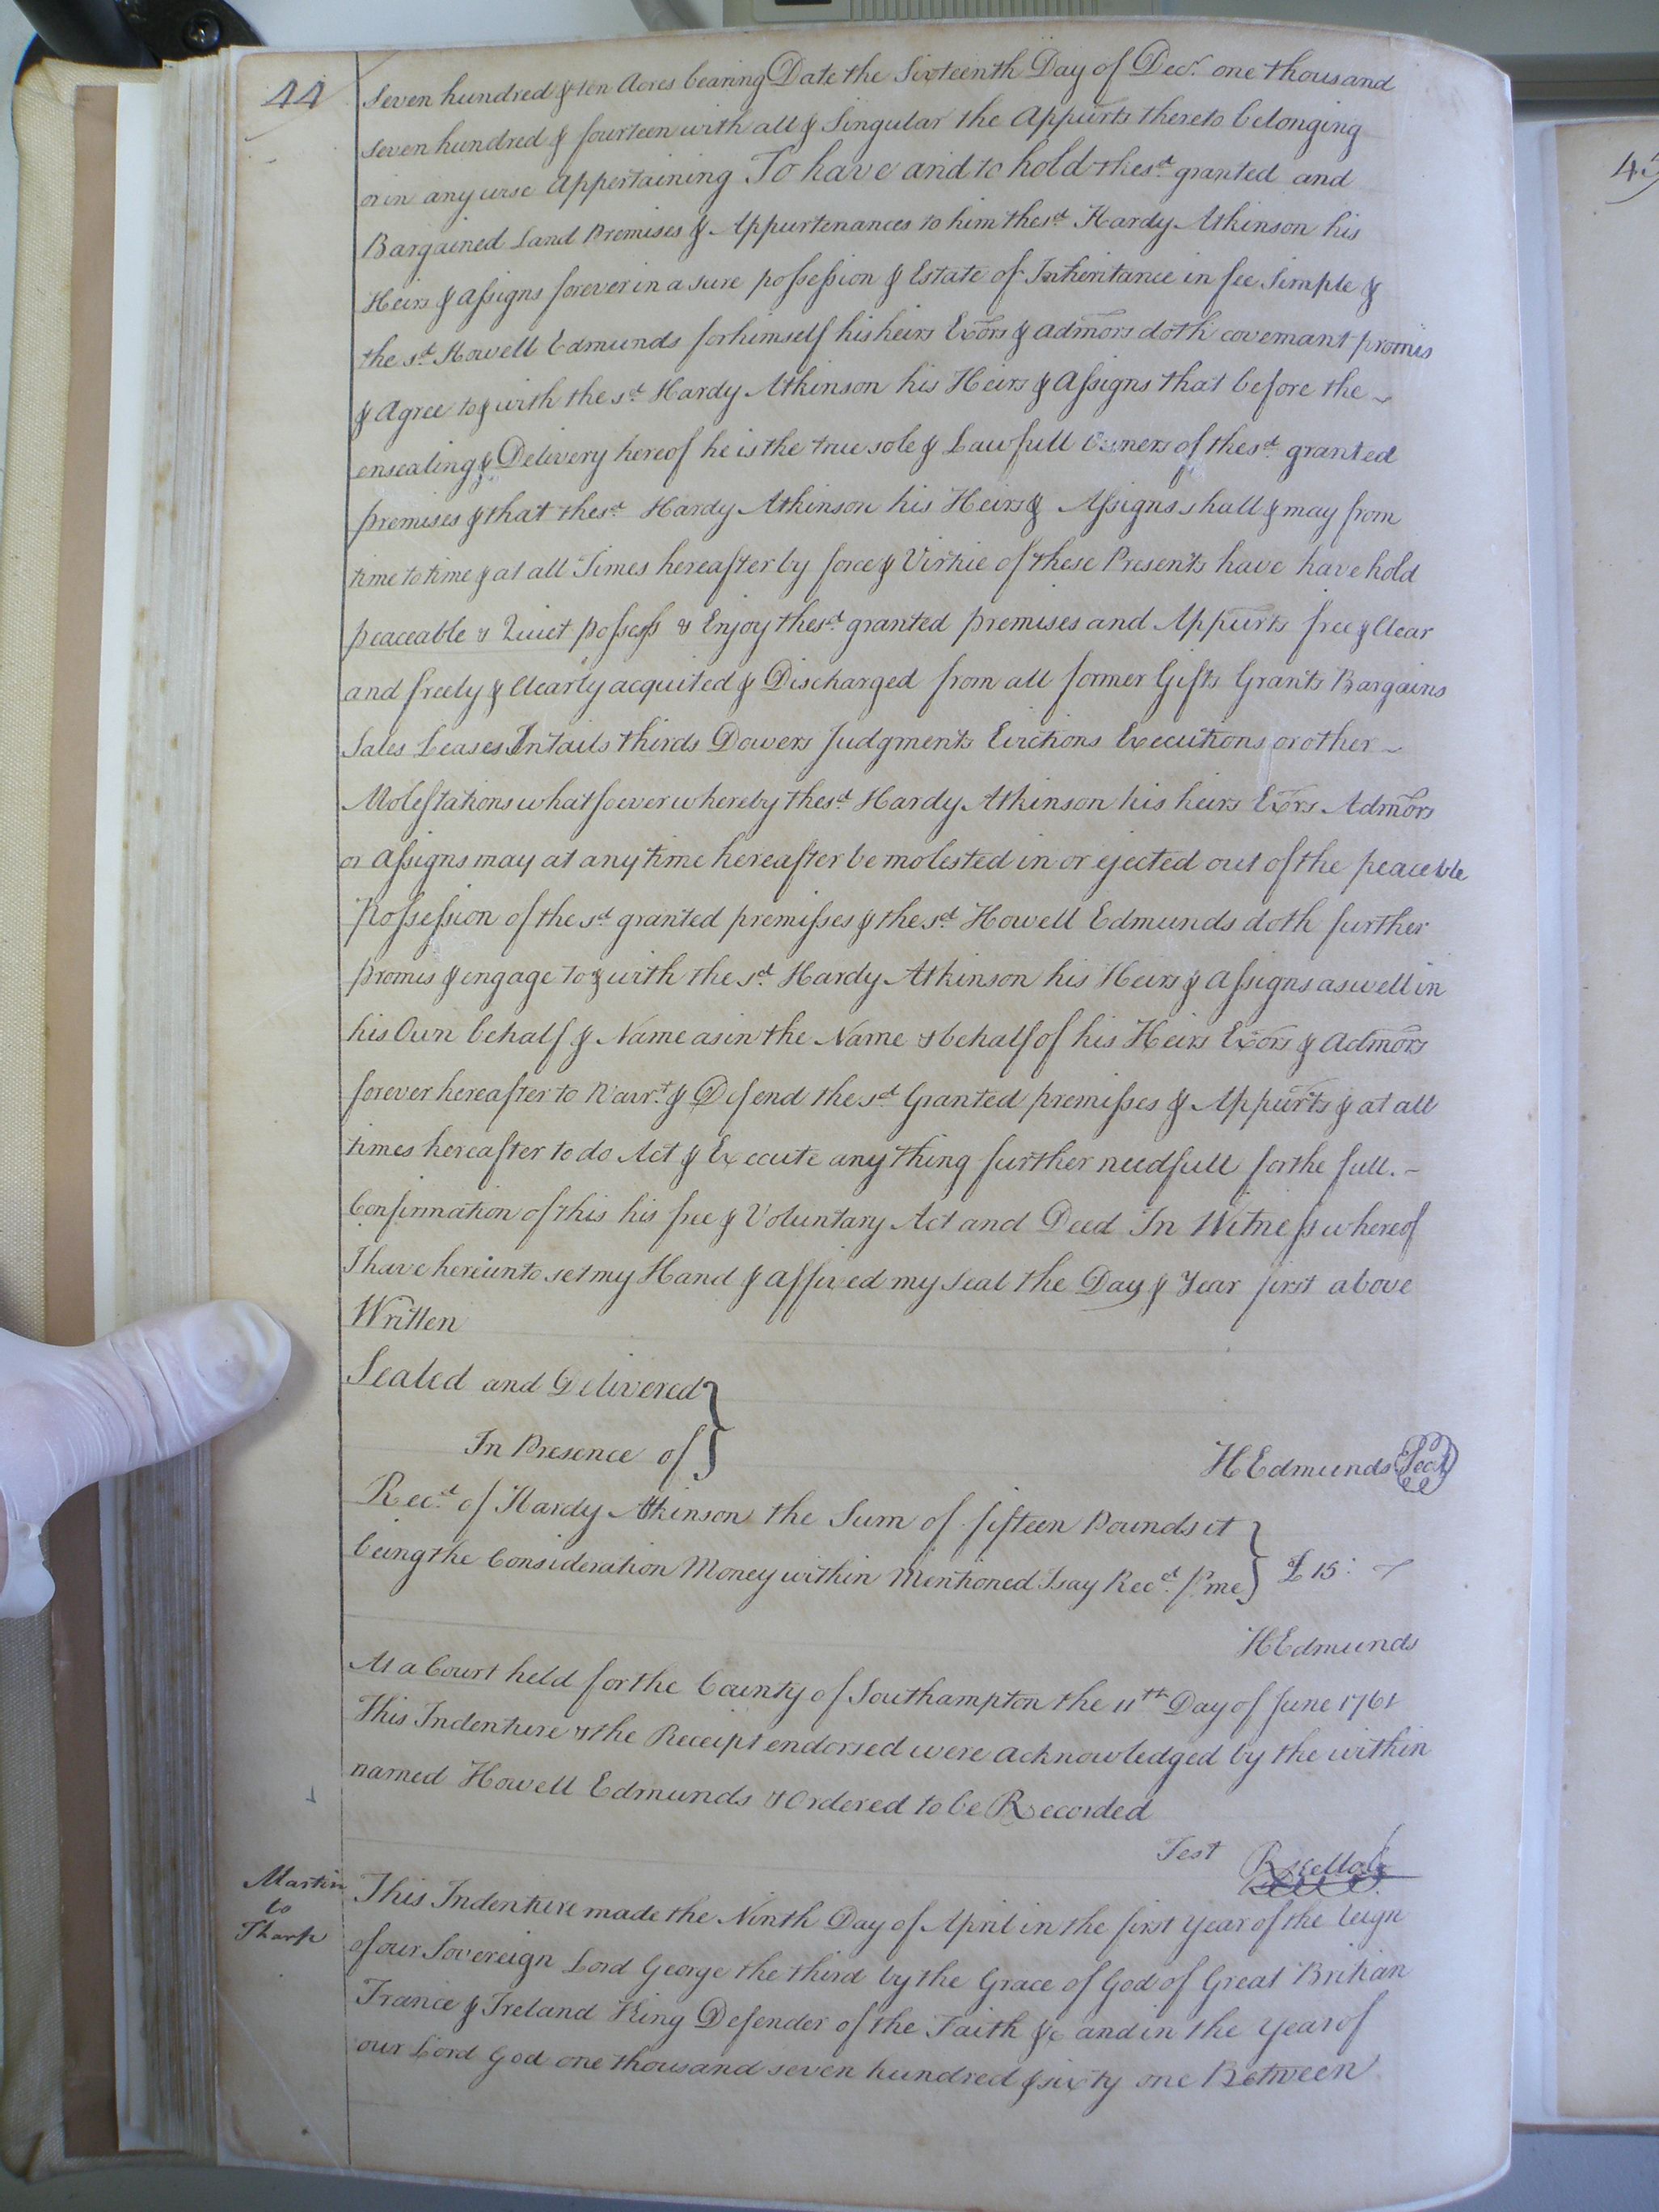 44
Seven hundred & ten Acres bearing Date the Sixteenth Day of Decr. one thousand
seven hundred & fourteen with all & Singular the Appurts thereto belonging
or in any wise Appertaining To have and to hold the sd. granted and
Bargained Land Premises & Appurtenances to him the sd. Hardy Atkinson his
Heirs & Assigns forever in a sure possession & Estate of Inheritance in fee Simple &
the sd. Howell Edmunds for himself his heirs Exors & Admors doth covenant promis
& Agree to & with the sd. Hardy Atkinson his Heirs & Assigns that before the
ensealing & Delivery hereof he is the true sole & Lawfull Owners of the sd. granted
premises & that the sd. Hardy Atkinson his Heirs & Assigns shall & may from
time to time & at all Times hereafter by force & Virtue of these Presents have have hold
peaceable & Quiet possess & Enjoy the sd. granted premises and Appurts free & Clear
and freely & Clearly acquited & Discharged from all former Gifts Grants Bargains
Sales Leases Intails thirds Dowers Judgments Evictions Executions or other
Molestations whatsoever whereby the sd. Hardy Atkinson his heirs Exrs Admors
or Assigns may at any time hereafter be molested in or ejected out of the peaceble
Possession of the sd. granted premisses & the sd. Howell Edmunds doth further
promis & engage to & with the sd. Hardy Atkinson his Heirs & Assigns as well in
his Own behalf & Name as in the Name & behalf of his Heirs Exors & Admors
forever hereafter to Warrt. & Defend the sd. Granted premisses & Appurts & at all
times hereafter to do Act & Execute any thing further needfull for the full.
Confirmation of this his free & Voluntary Act and Deed In Witness whereof
I have hereunto set my Hand & affixed my Seal the Day & Year first above
Written
Sealed and Delivered
In Presence of
H Edmunds Seal
Recd. of Hardy Atkinson the Sum of fifteen Pounds it
being the Consideration Money within Mentioned I say Recd. P me
£ 15:
H Edmunds
At a Court held for the County of Southampton the 11th Day of June 1761
This Indenture & the Receipt endorsed were acknowledged by the within
named Howell Edmunds & Ordered to be Recorded
Test
Martin
to
Tharp
This Indenture made the Ninth Day of April in the first Year of the Reign
of our Sovereign Lord George the third by the Grace of God of Great Britian
France & Ireland King Defender of the Faith &c and in the Year of
our Lord God one thousand seven hundred & sixty one Between